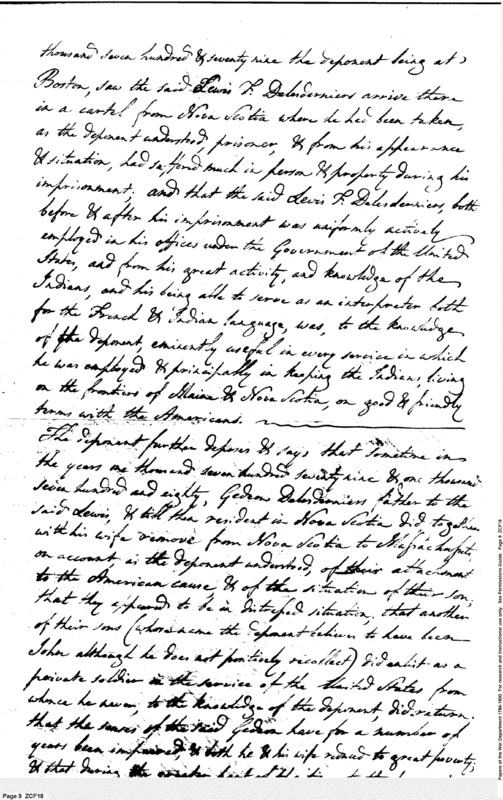 thousand seven hundred & seventy nine the deponent being at
Boston, saw the said Lewis F. Delesderniers arrive there
in a cartel from Nova Scotia where he had been taken,
as the deponent understood, prisoner, & from his appearance
& situation, had suffered much in person & property during his
imprisonment, and that the said Lewis F. Delesderniers, both
before & after his imprisonment was uniformly actively
employed in his offices under the Government of the United
States, and from his great activity, and knowledge of the
Indians, and his being able to serve as an interpreter both
for the French & Indian language, was, to the knowledge
of the deponent, eminently useful in every service in which
he was employed & principally in keeping the Indians, living
on the frontiers of Maine & Nova Scotia, on good & friendly
terms with the Americans.
The deponent further deposes & says that sometime in
the years one thousand seven hundred seventy nine & one thousand
seven hundred and eighty, Gedeon Delesderniers, father to the
said Lewis, & till then resident in Nova Scotia did together
with his wife remove from Nova Scotia to Massachusetts
on account as the deponent understood, of their attachment
to the American cause, & of the situation of their son,
that they appeared to be in distressed situation, that another
of their sons (whose name the deponent believes to have been
John although he does not positively recollect) did enlist as a
private soldier in the service of the United States from
whence he never, to the knowledge of the deponent, did return.
that the senses of the said Gedeon have for a number of
years been impaired, & both he & his wife reduced to great poverty,
& that during the
Page 9 ZCF18
Papers of the War Department 1784-1800. For research and instructional use only. See Permissions Guide. Page 9 ZCF18